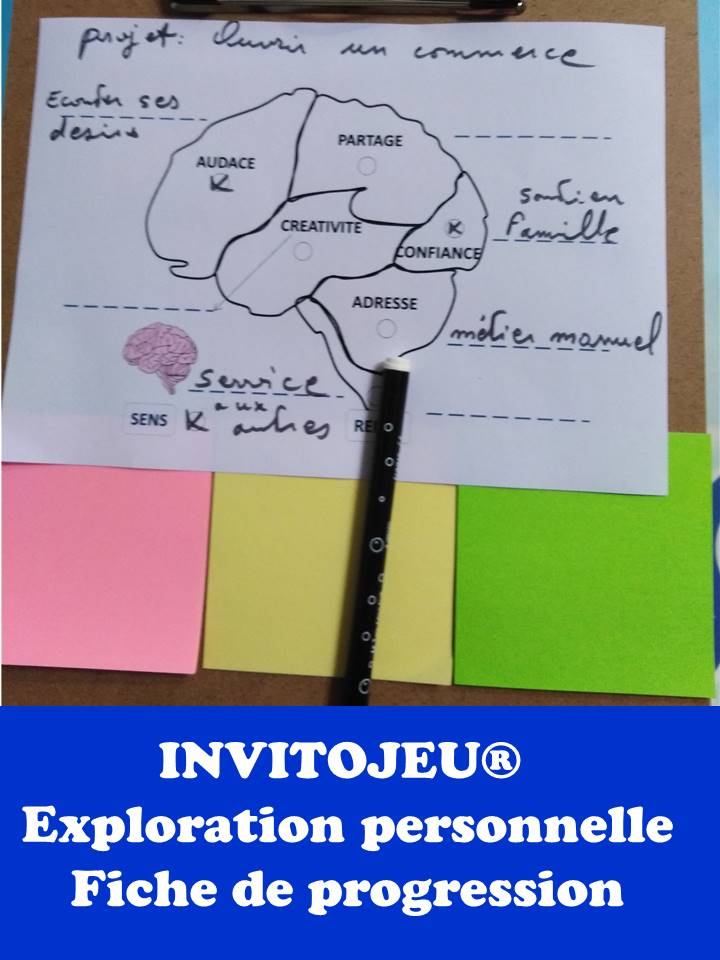 projet: Ouvrir un commerce
Ecouter ses
desirs
PARTAGE
AUDACE
soutien
famille
CREATIVITE
CONFIANCE
ADRESSE
métier manuel
service
aux
SENS
autres
INVITOJEU®
Exploration personnelle
Fiche de progression